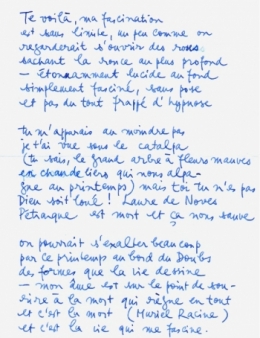 Te voilà, ma fascination
est sans limite, un peu comme on
regarderait s'ouvrir des roses
sachant la ronce au plus profond
— étonnamment lucide au fond
simplement fasciné, sans pose
et pas du tout frappé d'hypnose
tu m'apparais au moindre pas
je t'ai vue sous le catalpa
(tu sais, le grand arbre à fleurs mauves
en chandeliers qui nous alpa-
gue au printemps) mais toi tu n'es pas
Dieu soit loué ! Laure de Noves
Pétrarque est mort et ça nous sauve
on pourrait s'exalter beaucoup
par ce printemps au bord du Doubs
des formes que la vie dessine
— mon âme est sur le point de sou-
rire à la mort qui règne en tout
et c'est la mort (Muriel Racine)
et c'est la vie qui me fascine.